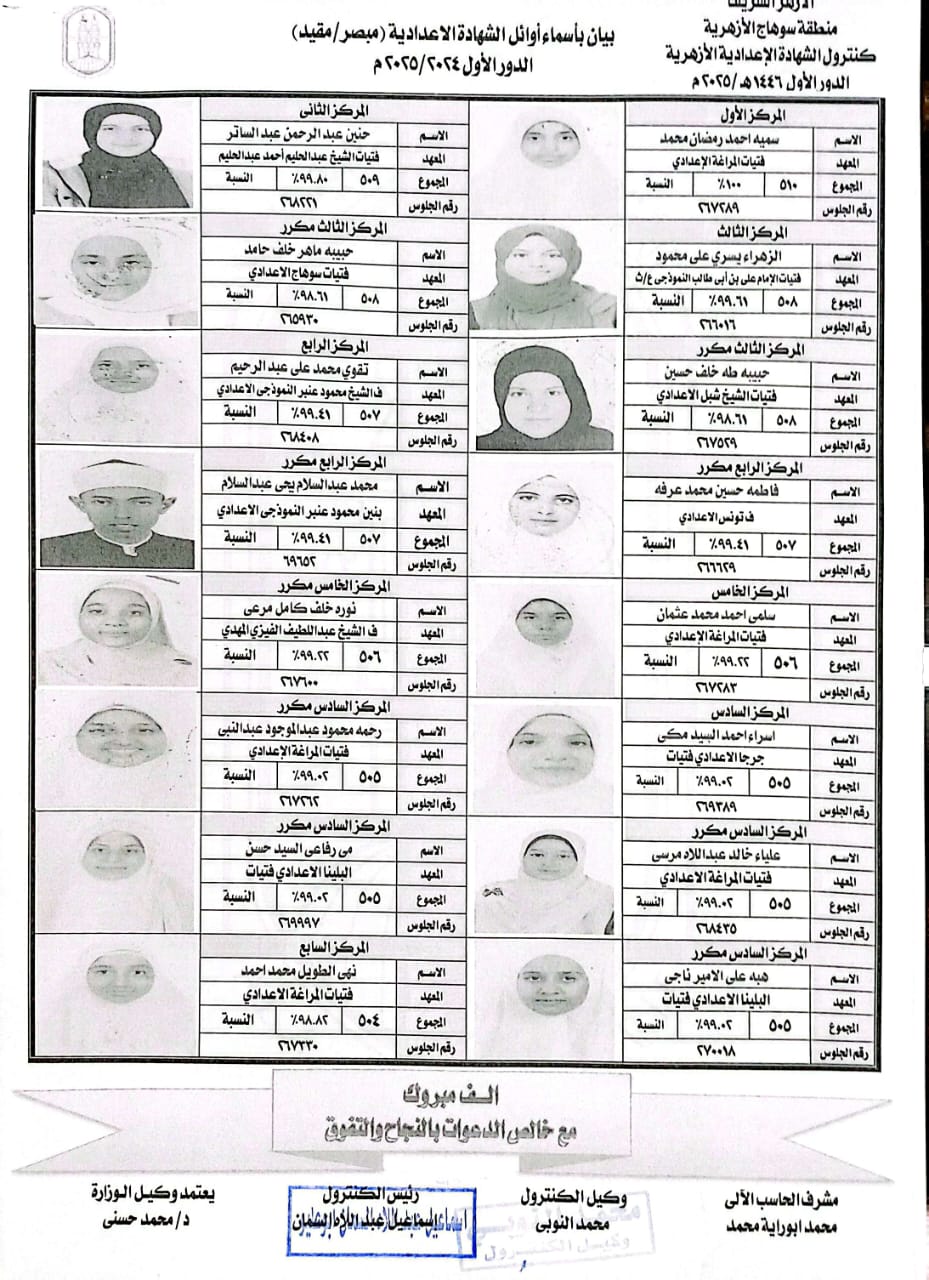 الأزهر الشريف
منطقة سوهاج الأزهرية
كنترول الشهادة الإعدادية الأزهرية
الدور الأول ١٤٤٦هـ/٢٠٢٥م
بيان بأسماء أوائل الشهادة الاعدادية (مبصر/مقيد)
الدور الأول ٢٠٢٥/٢٠٢٤م
المركز الأول
الاسم سميه احمد رمضان محمد
المعهد فتيات المراغة الإعدادي
المجموع ٥١٠ ١٠٠٪ النسبة
رقم الجلوس ٢٦٧٢٨٩
المركز الثانى
الاسم حنين عبد الرحمن عبد الساتر
المعهد فتيات الشيخ عبدالحليم أحمد عبدالحليم
المجموع ٥٠٩ ٩٩.٨٠٪ النسبة
رقم الجلوس ٢٦٨٢٢١
المركز الثالث
الاسم الزهراء يسري على محمود
المعهد فتيات الإمام على بن أبى طالب النموذجى ع/ث
المجموع ٥٠٨ ٩٩.٦١٪ النسبة
رقم الجلوس ٢٦٦٠١٦
المركز الثالث مكرر
الاسم حبيبه ماهر خلف حامد
المعهد فتيات سوهاج الاعدادي
المجموع ٥٠٨ ٩٨.٦١٪ النسبة
رقم الجلوس ٢٦٥٩٣٠
المركز الثالث مكرر
الاسم حبيبه طه خلف حسين
المعهد فتيات الشيخ شبل الاعدادي
المجموع ٥٠٨ ٩٨.٦١٪ النسبة
رقم الجلوس ٢٦٧٥٢٩
المركز الرابع
الاسم تقوي محمد على عبد الرحيم
المعهد ف الشيخ محمود عنبر النموذجى الاعدادي
المجموع ٥٠٧ ٩٩.٤١٪ النسبة
رقم الجلوس ٢٦٨٤٠٨
المركز الرابع مكرر
الاسم فاطمه حسين محمد عرفه
المعهد ف تونس الاعدادي
المجموع ٥٠٧ ٩٩.٤١٪ النسبة
رقم الجلوس ٢٦٦٦٢٩
المركز الرابع مكرر
الاسم محمد عبدالسلام يحى عبدالسلام
المعهد بنين محمود عنبر النموذجى الاعدادي
المجموع ٥٠٧ ٩٩.٤١٪ النسبة
رقم الجلوس ٦٩٦٥٢
المركز الخامس
الاسم سلمى احمد محمد عثمان
المعهد فتيات المراغة الإعدادي
المجموع ٥٠٦ ٩٩.٢٢٪ النسبة
رقم الجلوس ٢٦٧٢٨٣
المركز الخامس مكرر
الاسم نوره خلف كامل مرعى
المعهد ف الشيخ عبداللطيف الفيزي المهدي
المجموع ٥٠٦ ٩٩.٢٢٪ النسبة
رقم الجلوس ٢٦٧٦٠٠
المركز السادس
الاسم اسراء احمد السيد مكى
المعهد جرجا الاعدادي فتيات
المجموع ٥٠٥ ٩٩.٠٢٪ النسبة
رقم الجلوس ٢٦٩٣٨٩
المركز السادس مكرر
الاسم رحمه محمود عبدالموجود عبدالنبى
المعهد فتيات المراغة الإعدادي
المجموع ٥٠٥ ٩٩.٠٢٪ النسبة
رقم الجلوس ٢٦٧٢٦٢
المركز السادس مكرر
الاسم علياء خالد عبداللاه مرسى
المعهد فتيات المراغة الإعدادي
المجموع ٥٠٥ ٩٩.٠٢٪ النسبة
رقم الجلوس ٢٦٨٤٣٥
المركز السادس مكرر
الاسم مى رفاعى السيد حسن
المعهد البلينا الاعدادي فتيات
المجموع ٥٠٥ ٩٩.٠٢٪ النسبة
رقم الجلوس ٢٦٩٩٩٧
المركز السادس مكرر
الاسم هبه على الامير ناجى
المعهد البلينا الاعدادي فتيات
المجموع ٥٠٥ ٩٩.٠٢٪ النسبة
رقم الجلوس ٢٧٠٠١٨
المركز السابع
الاسم نهى الطويل محمد احمد
المعهد فتيات المراغة الإعدادي
المجموع ٥٠٤ ٩٨.٨٢٪ النسبة
رقم الجلوس ٢٦٧٣٣٠
الـف مبروك
مع خالص الدعوات بالنجاح والتفوق
مشرف الحاسب الآلى
محمد ابوراية محمد
وكيل الكنترول
محمد النوبى
رئيس الكنترول
يعتمد وكيل الوزارة
د/ محمد حسنى
محمد النوبى
وكيل الكنترول